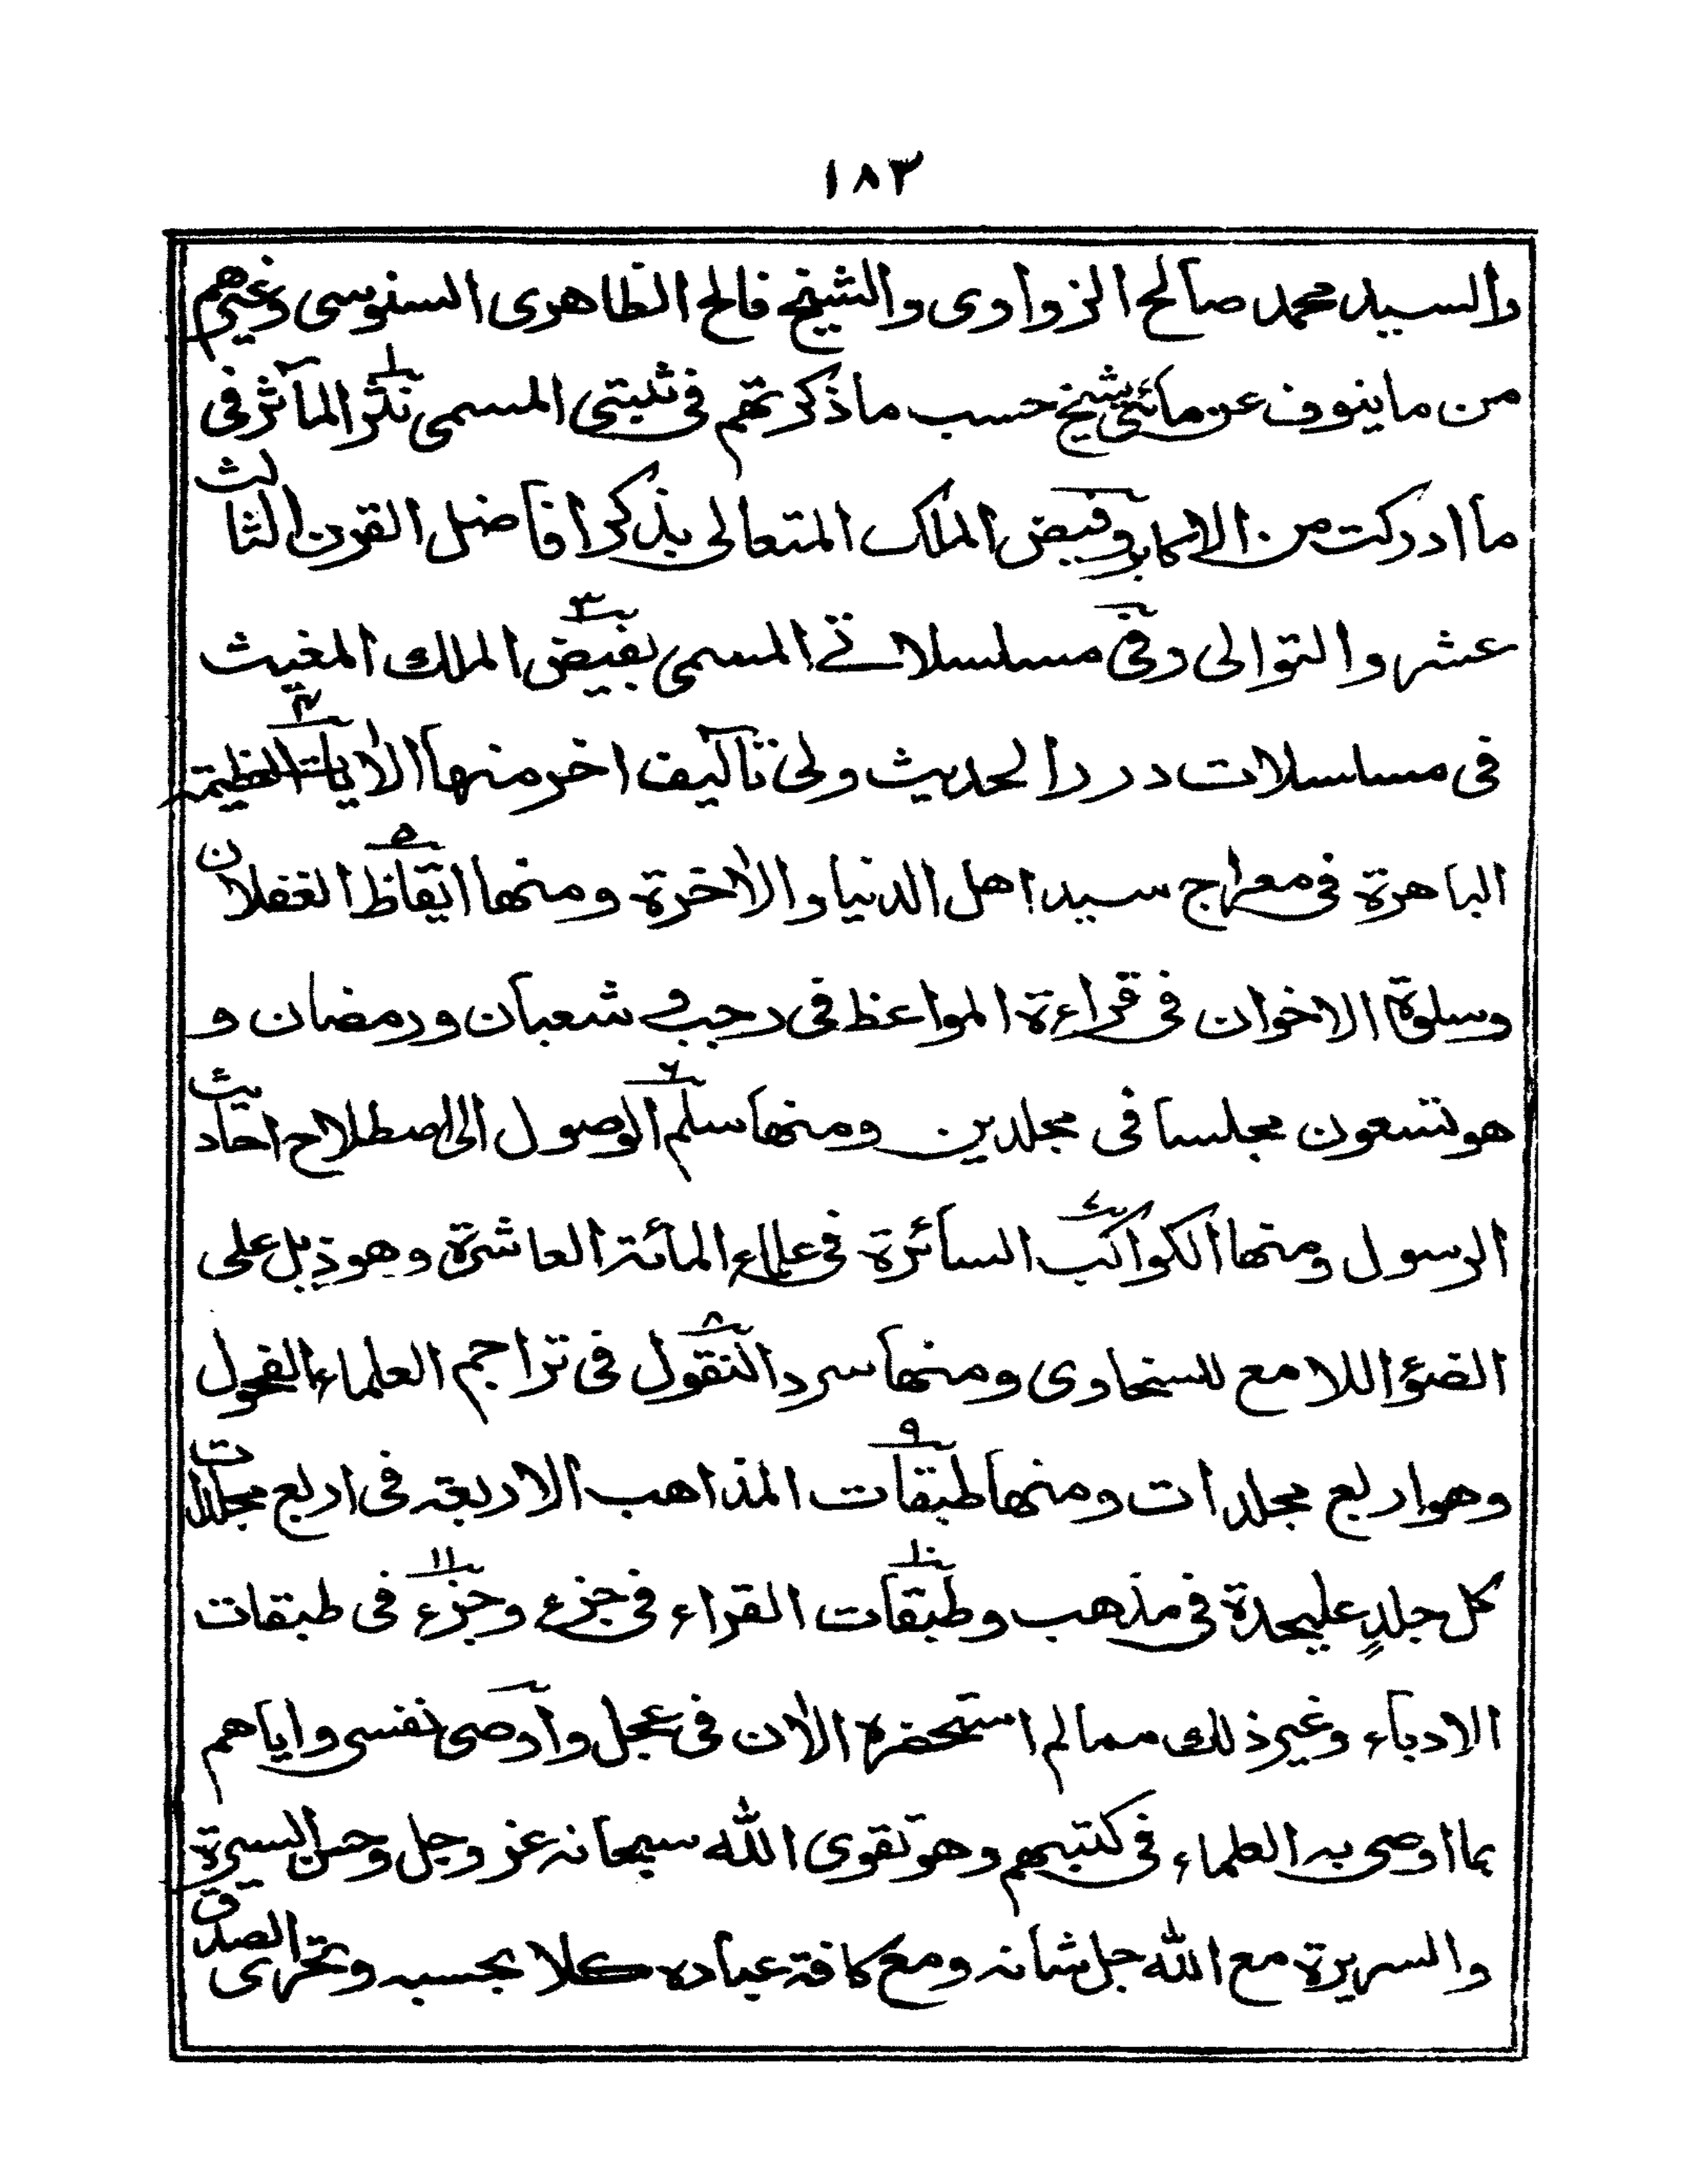 ١٨٣
والسيد محمد صالح الزواوى والشيخ فالح الظاهرى السنوسى وغيرهم
من ما ينوف عن مائتى شيخ حسب ما ذكرتهم فى ثبتى المسمى نثر المآثر فى
ما ادركت من الاكابر وفيض الملك المتعالى بذكر افاضل القرن الثالث
عشر والتوالى وفى مسلسلاتے المسمى بفيض الملك المغيث
فى مسلسلات درر الحديث ولى تآليف اخر منها الاٰيات العظيمة
الباهرة فى معراج سيد اهل الدنيا والاٰخرة ومنها ايقاظ الغفلان
وسلوة الاخوان فى قراءة المواعظ فى رجب و شعبان ورمضان و
هو تسعون مجلسا فى مجلدين ومنها سلم الوصول الى اصطلاح احاديث
الرسول ومنها الكواكب السائرة فى علماء المائة العاشرة وهو ذيل على
الضوء اللامع للسخاوى ومنها سرد النقول فى تراجم العلماء الفحول
وهو اربع مجلدات ومنها طبقات المذاهب الاربعة فى اربع مجلدات
كل جلدٍ عليحدة فى مذهب وطبقات القراء فى جزء وجزء فى طبقات
الادباء وغير ذلك مما لم استحضره الاٰن فى عجل واوصى نفسى واياهم
بما اوصى به العلماء فى كتبهم وهو تقوى الله سبحانه عز وجل وحسن السيرة
والسريرة مع الله جل شانه ومع كافة عباده كلا بحسبه وتحرى الصدق